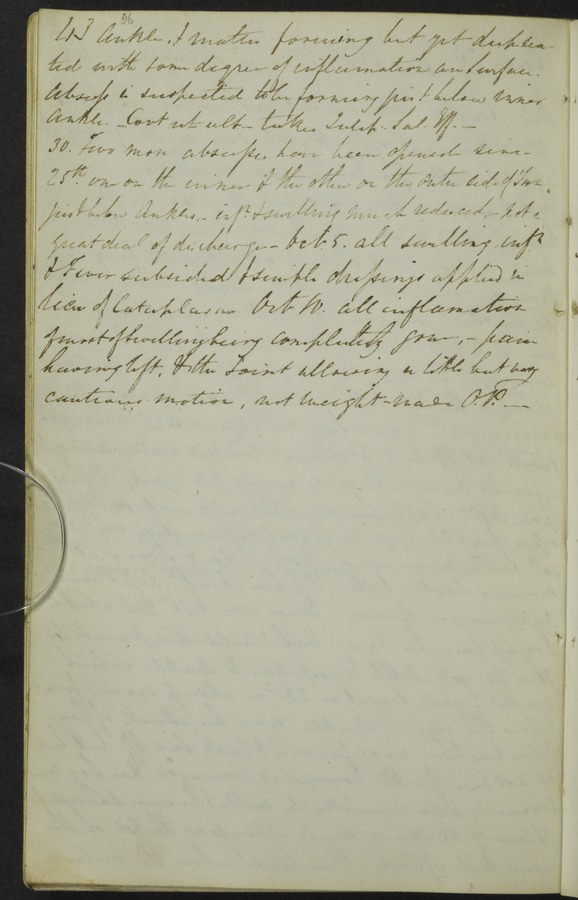 96
Ankle. & matter forming but yet deep sea-
ted with some degree of inflammation on surface.
Abscess is suspected to be forming just below inner
Ankle. - Cont ut ult - takes Sulph. Sal. Eff. -
30. Two more abscesses have been opened since
25th one on the inner & the other on the outer side of
just below ankles, - infn & swelling much reduced, - not a
great deal of discharge - Oct. 5. all swelling infn
& Fever subsided & simple dressings applied in
lieu of Cataplasm Oct. 10. all inflamation
& most of swelling being completely gone, - pain
having left, & the Joint allowing a little but very
cautious motion, not weight - made O.P. -